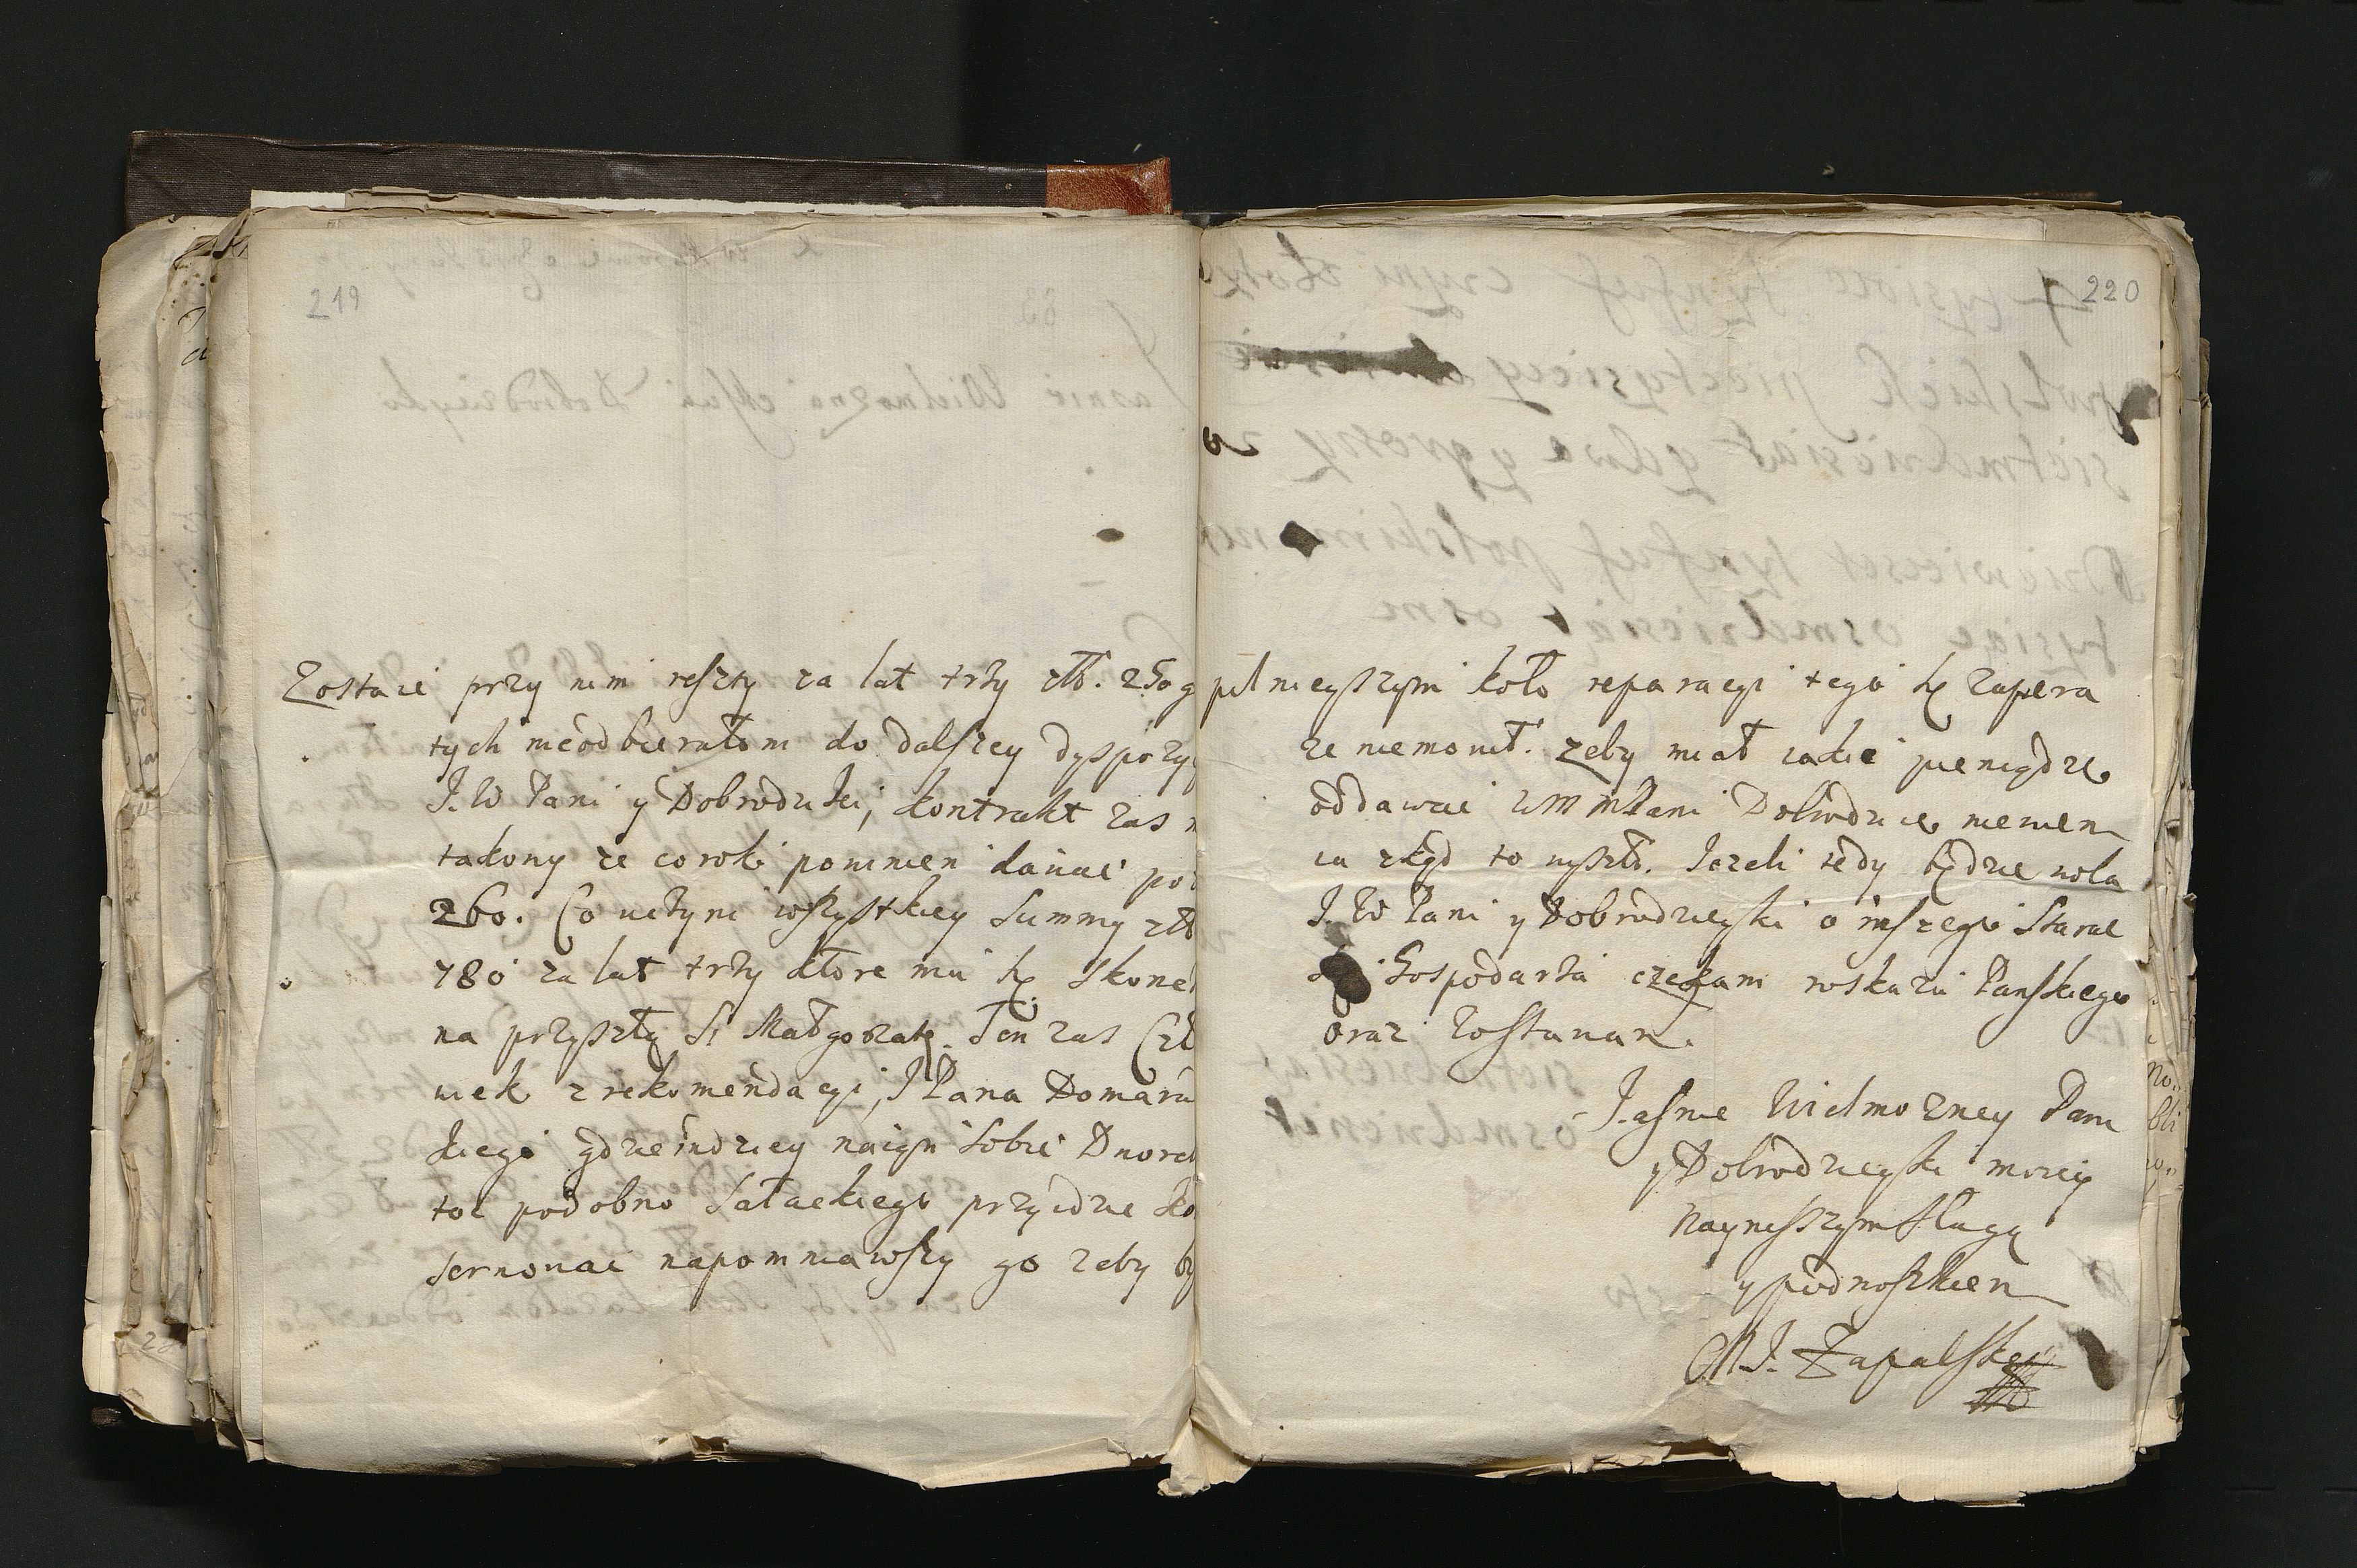 219
Zostaie przy nim reszty za lat trzy złł. 250 g
tych nieodbierałem do dalszey dyspozy
J. W Pani y Dobrodzki, kontrakt zas
takowy ze co rok powinien dawac po
260. Co uczyni wszystkiey Summy złł
780 za lat trzy ktore mu się skoncz
na przyszłą S. Małgorzatę. Ten zas Czł
wiek z rekomendacyi J Pana Domaru
skiego gdzieindziey naiął sobie Dworek
toc podobno Sałackiego przyidzie ko
serwowac napomniawszy go zeby by
220
pilnieyszym koło reparacyi tego się zapiera
ze niemowił. zeby miał iakie pieniądze
oddawac WMMPani Dobrodzice niewiem
ia zkąd to wyszło. Jezeli tedy będzie wola
J. W Pani y Dobrodzieyki o inszego Starac
Gospodarza czekam roskazu Panskiego
oraz zostawam.
Jasnie Wielmozney Pani
y Dobrodzieyki moiey
Nayniszszym Sługą
y podnoszkiem
M J. Zapalski